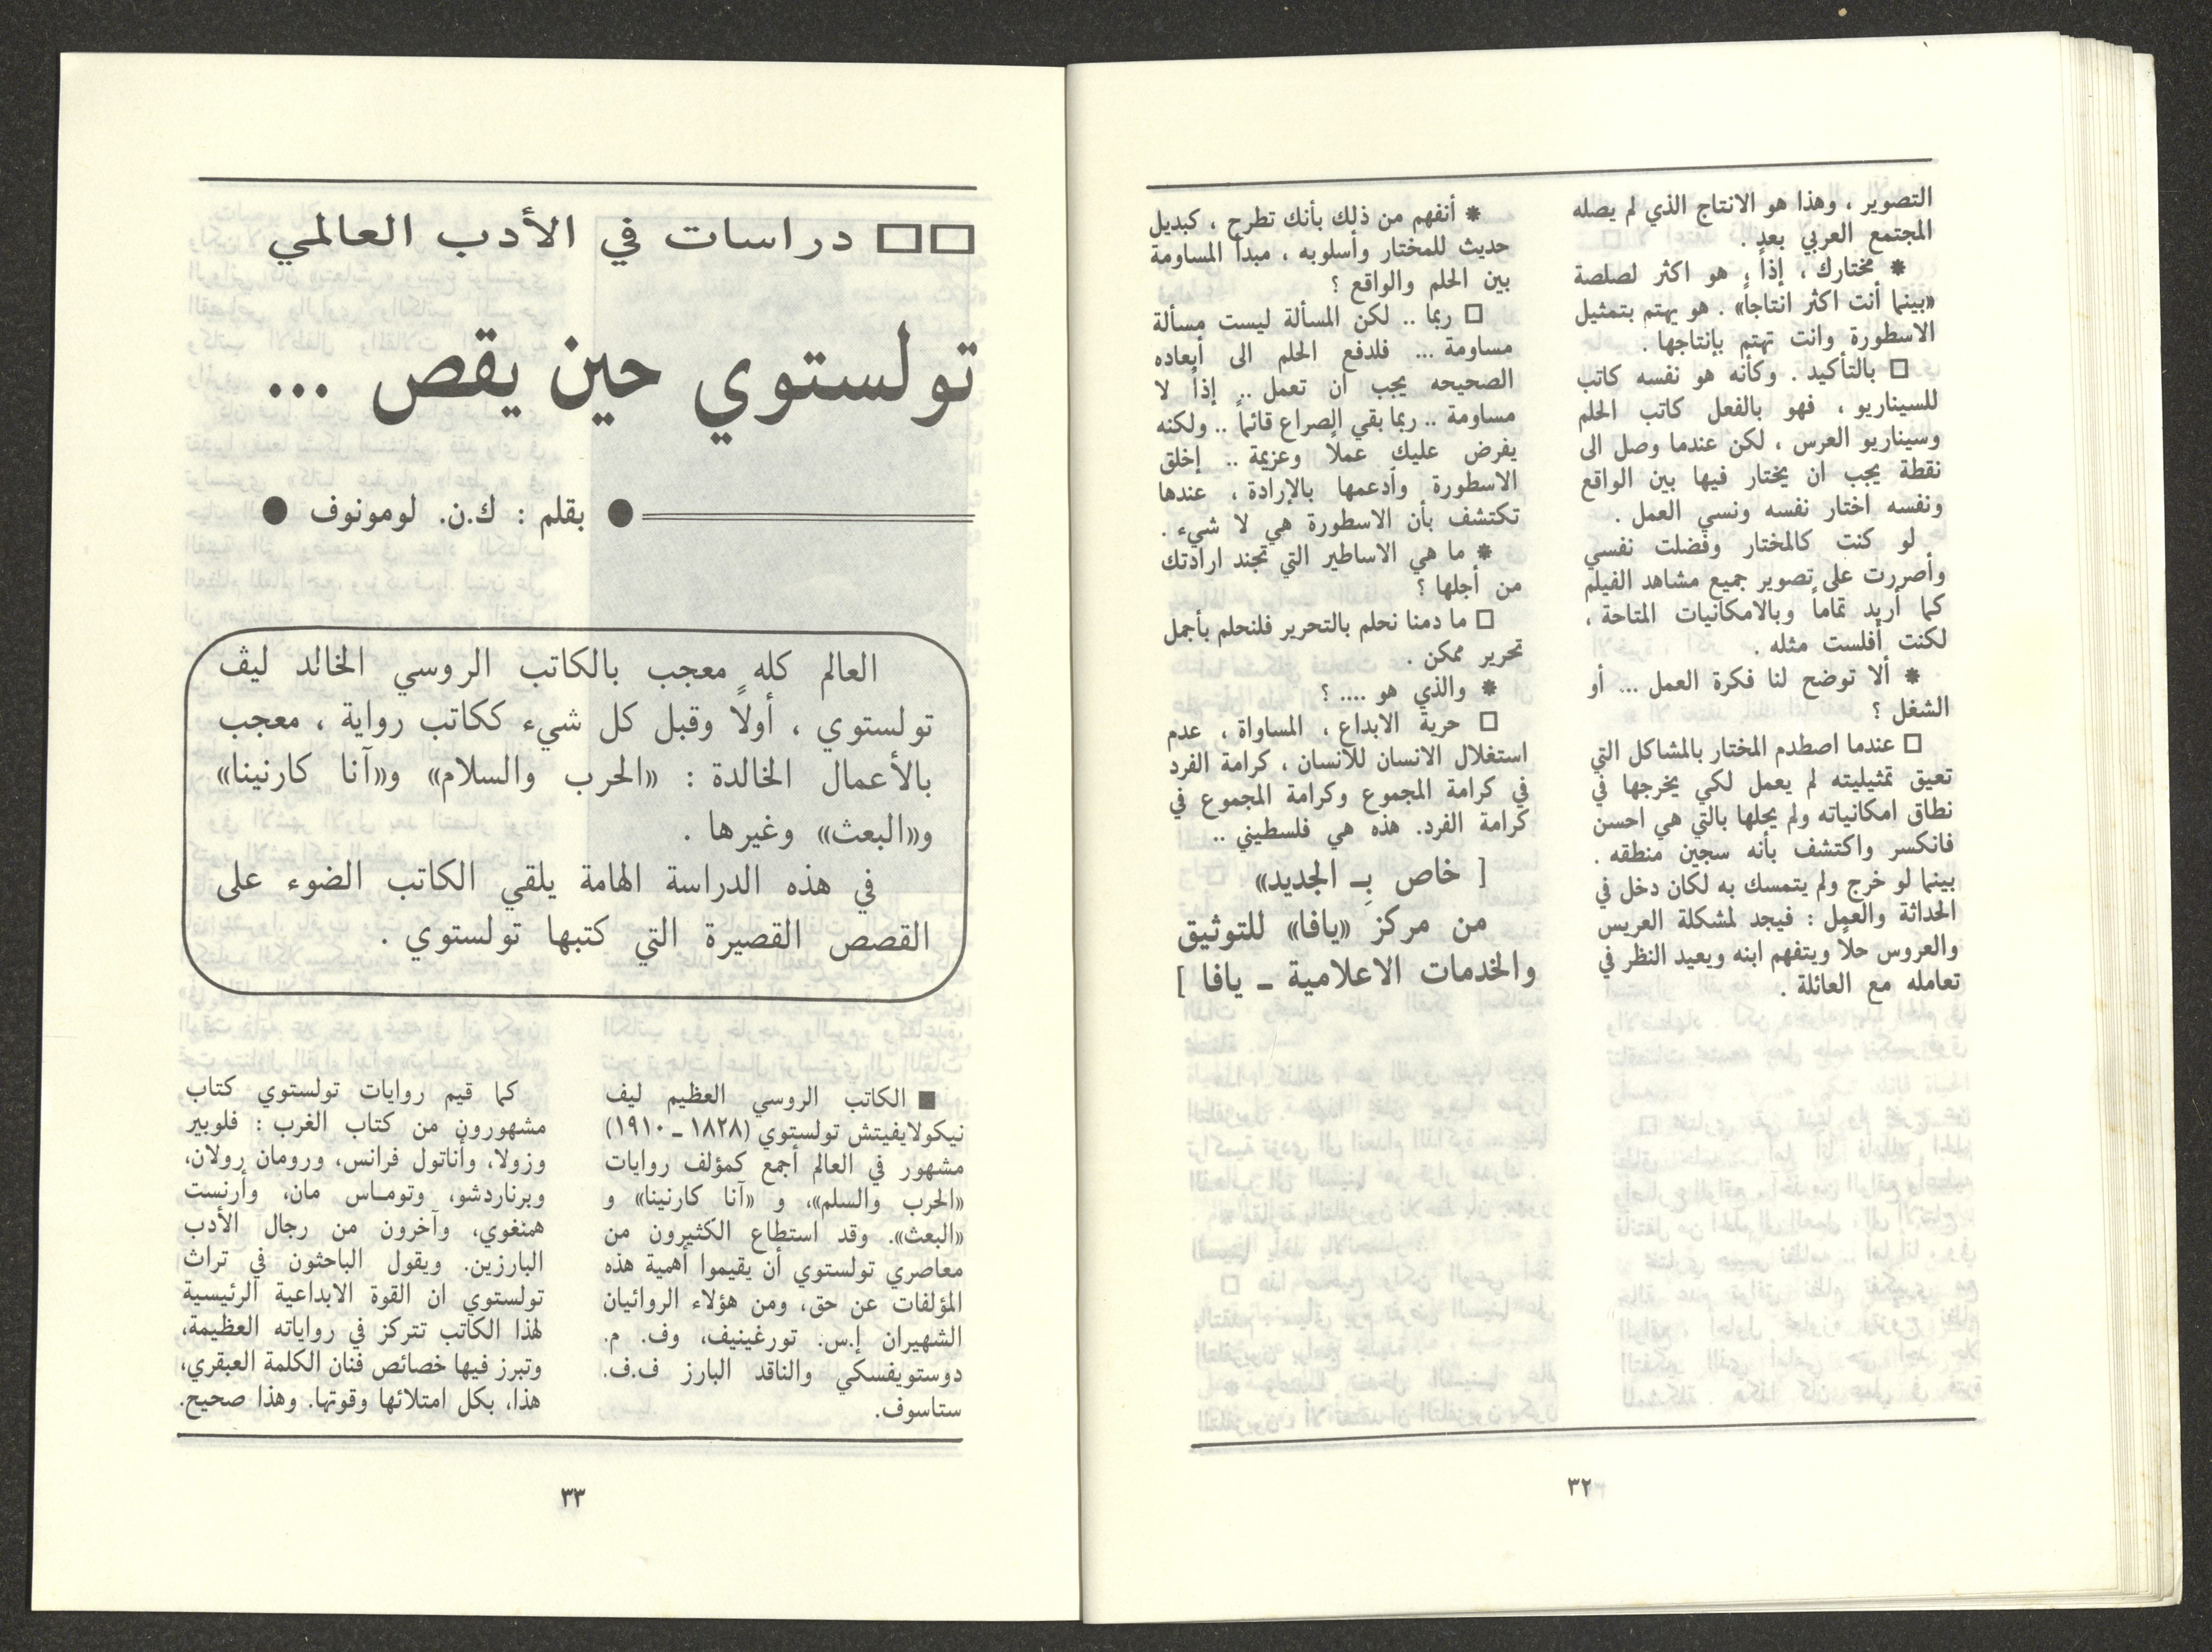 التصوير ، وهذا هو الانتاج الذي لم يصله
المجتمع العربي بعد .
* مختارك ، إذاً ، هو اكثر لصلصة
«بينما أنت اكثر انتاجاً» . هو يهتم بتمثيل
الاسطورة وانت تهتم بإنتاجها .
□ بالتأكيد . وكأنه هو نفسه كاتب
للسيناريو ، فهو بالفعل كاتب الحلم
وسيناريو العرس ، لكن عندما وصل الى
نقطة يجب ان يختار فيها بين الواقع
ونفسه اختار نفسه ونسي العمل .
لو كنت كالمختار وفضلت نفسي
وأصررت على تصوير جميع مشاهد الفيلم
كما أريد تماماً وبالامكانيات المتاحة ،
لكنت أفلست مثله .
* ألا توضح لنا فكرة العمل ... أو
الشغل ؟
□ عندما اصطدم المختار بالمشاكل التي
تعيق تمثيليته لم يعمل لكي يخرجها في
نطاق امكانياته ولم يحلها بالتي هي احسن
فانكسر واكتشف بأنه سجين منطقه .
بينما لو خرج ولم يتمسك به لكان دخل في
الحداثة والعمل : فيجد لمشكلة العريس
والعروس حلاً ويتفهم ابنه ويعيد النظر في
تعامله مع العائلة .
* أنفهم من ذلك بأنك تطرح ، كبديل
حديث للمختار وأسلوبه ، مبدأ المساومة
بين الحلم والواقع ؟
□ ربما .. لكن المسألة ليست مسألة
مساومة ... فلدفع الحلم الى أبعاده
الصحيحه يجب ان تعمل .. إذاً لا
مساومة .. ربما بقي الصراع قائماً .. ولكنه
يفرض عليك عملاً وعزيمة .. إخلق
الاسطورة وأدعمها بالإرادة ، عندها
تكتشف بأن الاسطورة هي لا شيء .
* ما هي الاساطير التي تجند ارادتك
من أجلها ؟
□ ما دمنا نحلم بالتحرير فلنحلم بأجمل
تحرير ممكن .
* والذي هو .... ؟
□ حرية الابداع ، المساواة ، عدم
استغلال الانسان للانسان ، كرامة الفرد
في كرامة المجموع وكرامة المجموع في
كرامة الفرد. هذه هي فلسطيني ..
[ خاص بِـ الجديد»
من مركز «يافا» للتوثيق
والخدمات الاعلامية ـ يافا ]
٣٢
□□ دراسات في الأدب العالمي
تولستوي حين يقص ...
● بقلم : ك.ن. لومونوف ●
العالم كله معجب بالكاتب الروسي الخالد ليڤ
تولستوي ، أولاً وقبل كل شيء ككاتب رواية ، معجب
بالأعمال الخالدة : «الحرب والسلام» و«آنا كارنينا»
و«البعث» وغيرها .
في هذه الدراسة الهامة يلقي الكاتب الضوء على
القصص القصيرة التي كتبها تولستوي .
■ الكاتب الروسي العظيم ليف
نيكولايفيتش تولستوي (١٨٢٨ ـ ١٩١٠)
مشهور في العالم أجمع كمؤلف روايات
«الحرب والسلم»، و «آنا كارنينا» و
«البعث». وقد استطاع الكثيرون من
معاصري تولستوي أن يقيموا أهمية هذه
المؤلفات عن حق، ومن هؤلاء الروائيان
الشهيران إ.س. تورغينيف، وف. م.
دوستويفسكي والناقد البارز ف.ف.
ستاسوف.
كما قيم روايات تولستوي كتاب
مشهورون من كتاب الغرب : فلوبير
وزولا، وأناتول فرانس، ورومان رولان،
وبرناردشو، وتومـاس مان، وأرنست
همنغوي، وآخرون من رجال الأدب
البارزين. ويقول الباحثون في تراث
تولستوي ان القوة الابداعية الرئيسية
لهذا الكاتب تتركز في رواياته العظيمة،
وتبرز فيها خصائص فنان الكلمة العبقري،
هذا، بكل امتلائها وقوتها. وهذا صحيح.
٣٣